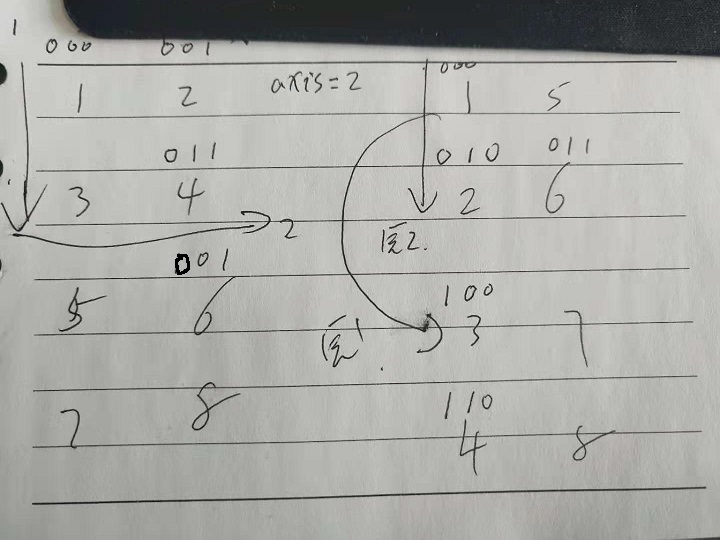 1
000 001
1 2 axis=2
011
3 4
2
001
5 6
7 8
000
1 5
010 011
2 6
100
3 7
110
4 8